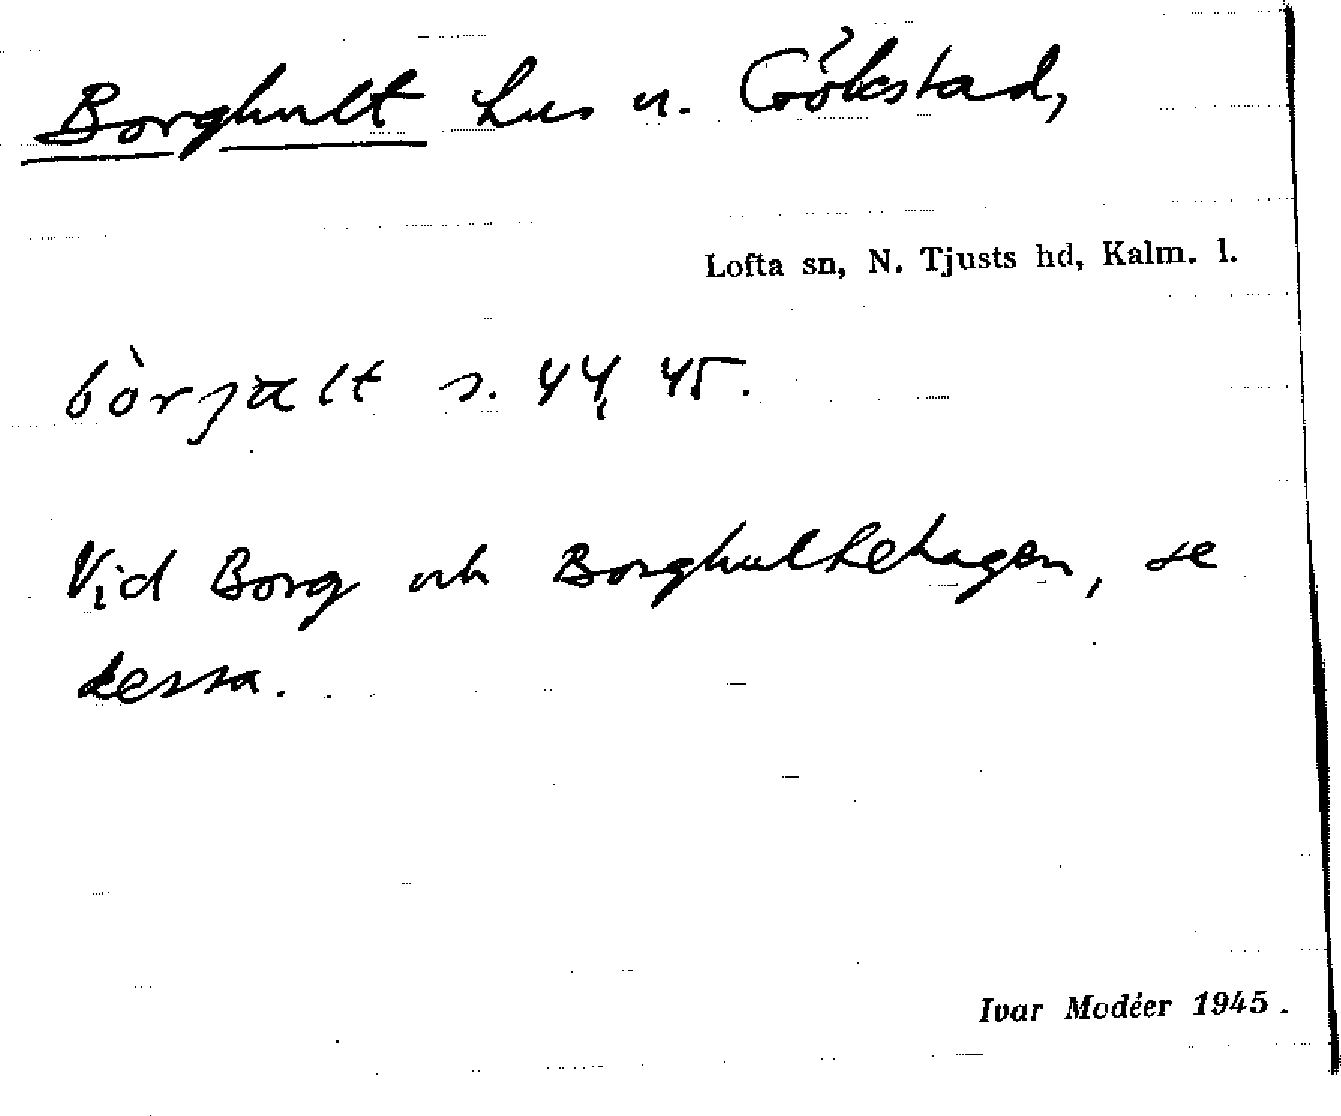 Borghult hus u. Gökstad,
Lofta sn, N. Tjusts hd, Kalm. l.
bòrjalt s. 44, 45.
Vid Borg och Borghultehagen, se
dessa.
Ivar Modéer 1945.